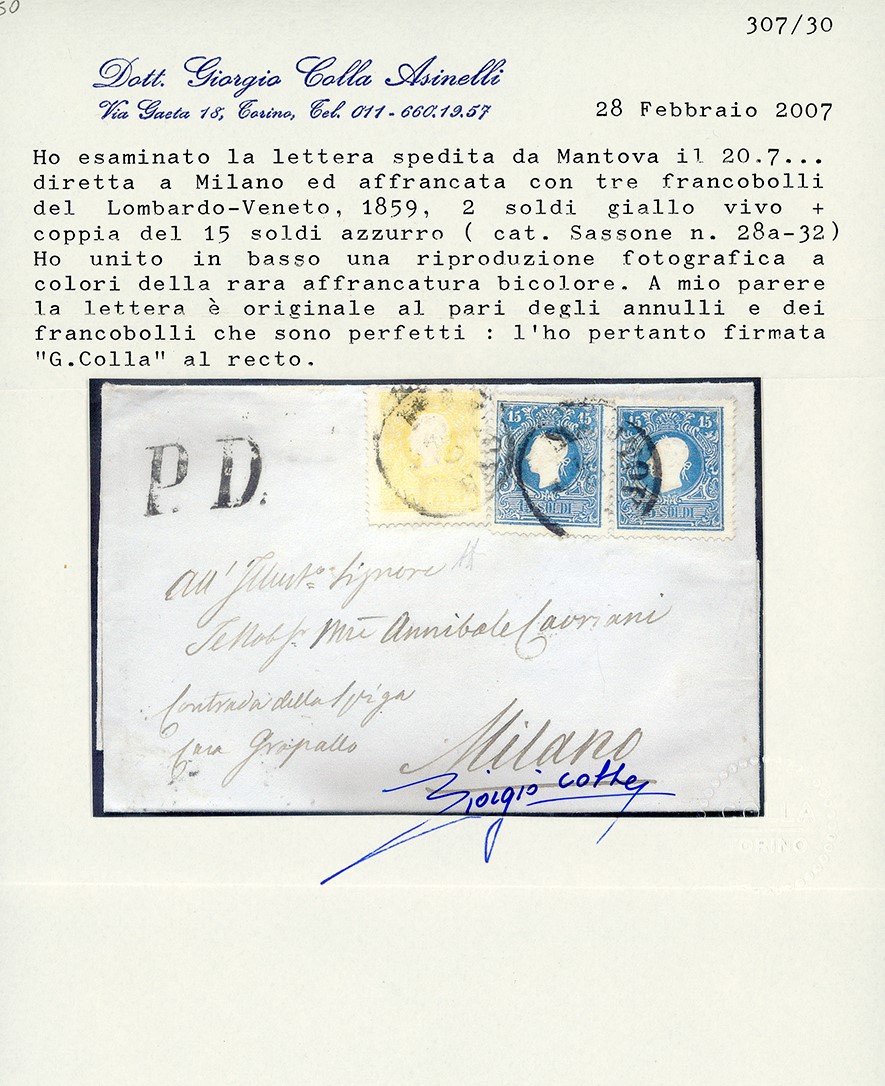 50
307/30
Dott. Giorgio Colla Asinelli
Via Gaeta 18, Torino, Tel. 011-660.19.57
28 Febbraio 2007
Ho esaminato la lettera spedita da Mantova il 20.7...
diretta a Milano ed affrancata con tre francobolli
del Lombardo-Veneto, 1859, 2 soldi giallo vivo +
coppia del 15 soldi azzurro ( cat. Sassone n. 28a-32)
Ho unito in basso una riproduzione fotografica a
colori della rara affrancatura bicolore. A mio parere
la lettera è originale al pari degli annulli e dei
francobolli che sono perfetti : l'ho pertanto firmata
"G.Colla" al recto.
P. D.
15 15
15 SOLDI
15 15
15 SOLDI
All' Illust. Signore
Annibale Cavriani
Contrada della Spiga
Casa Gropallo
Milano
Giorgio Colla
COLLA
TORINO